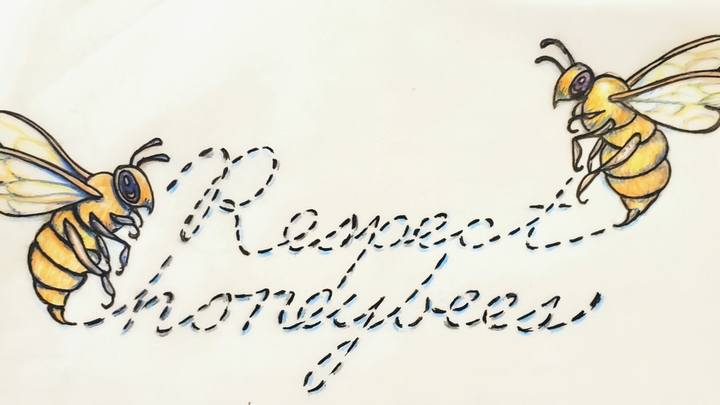 Respect
honeybees